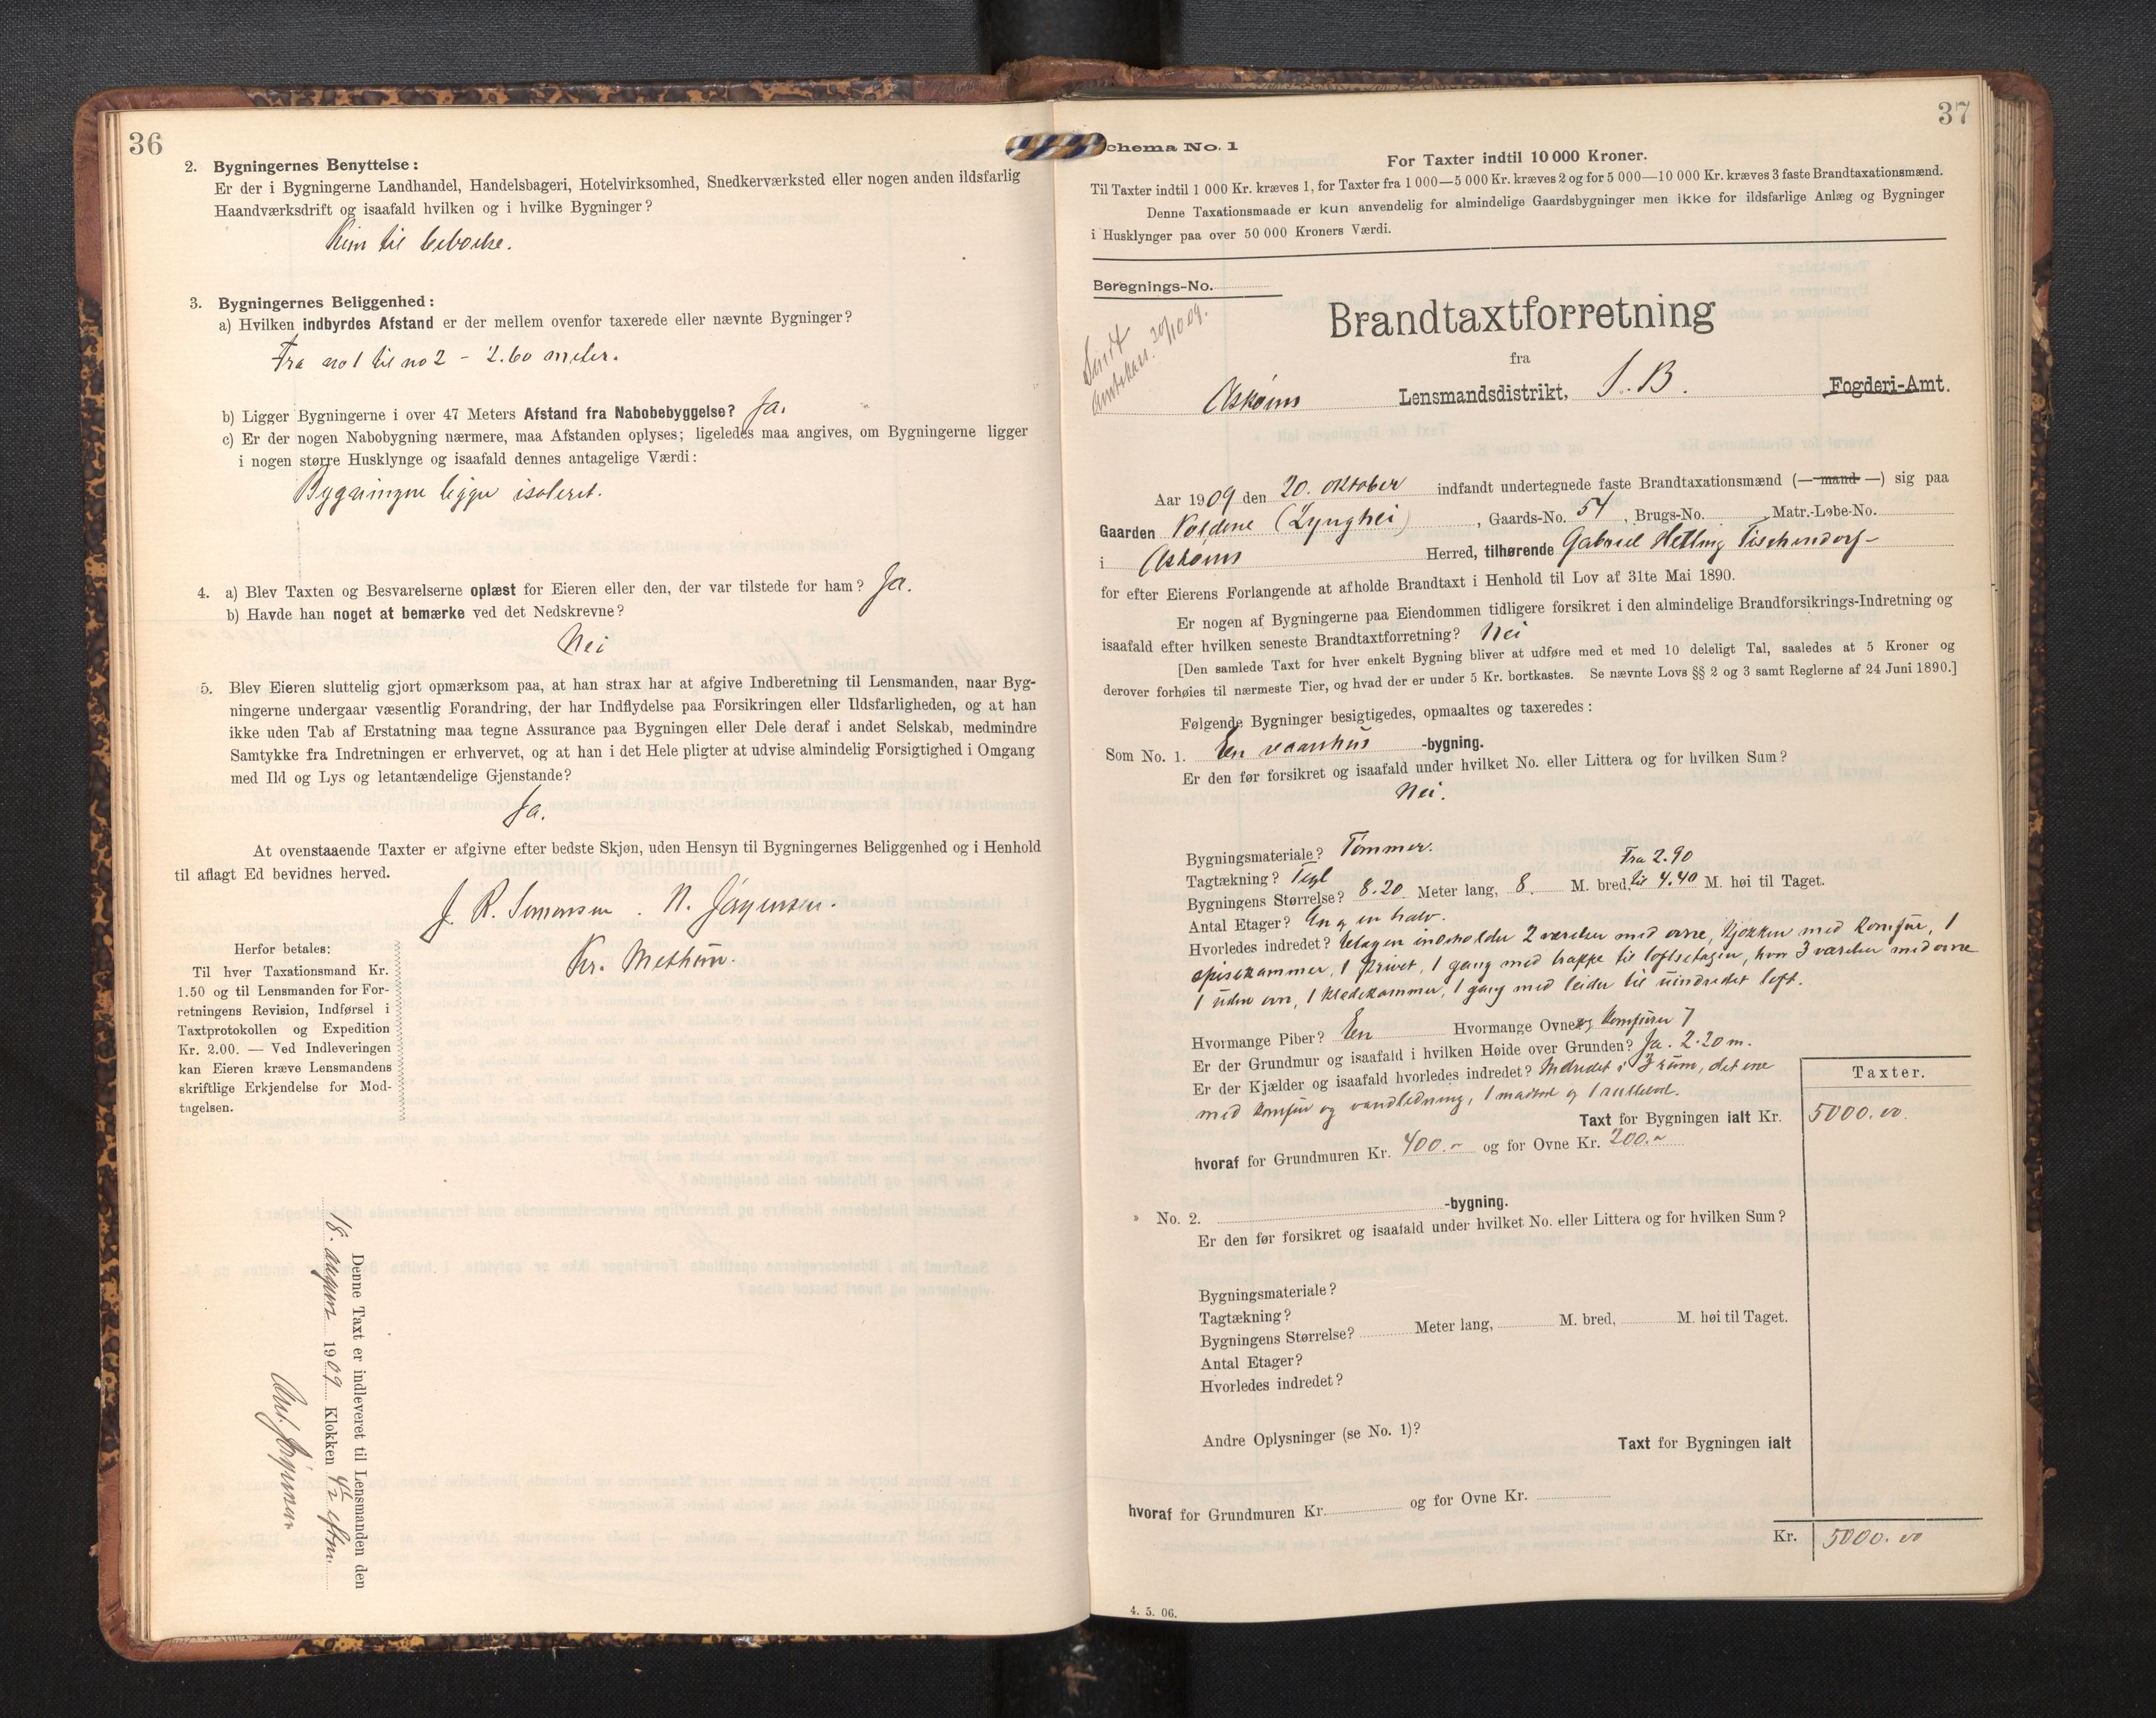 36
2. Bygningernes Benyttelse:
Er der i Bygningerne Landhandel, Handelsbageri, Hotelvirksomhed, Snedkerværksted eller nogen anden ildsfarlig
Haandværksdrift og isaafald hvilken og i hvilke Bygninger?
Kun til beboelse.
3. Bygningernes Beliggenhed:
a) Hvilken indbyrdes Afstand er der mellem ovenfor taxerede eller nævnte Bygninger?
Fra no 1 til no 2 - 2.60 meter.
b) Ligger Bygningerne i over 47 Meters Afstand fra Nabobebyggelse? Ja.
c) Er der nogen Nabobygning nærmere, maa Afstanden oplyses; ligeledes maa angives, om Bygningerne ligger
i nogen større Husklynge og isaafald dennes antagelige Værdi:
Bygningene ligger isoleret.
4. a) Blev Taxten og Besvarelserne oplæst for Eieren eller den, der var tilstede for ham? Ja.
b) Havde han noget at bemærke ved det Nedskrevne?
Nei
5. Blev Eieren sluttelig gjort opmærksom paa, at han strax har at afgive Indberetning til Lensmanden, naar Byg-
ningerne undergaar væsentlig Forandring, der har Indflydelse paa Forsikringen eller Ildsfarligheden, og at han
ikke uden Tab af Erstatning maa tegne Assurance paa Bygningen eller Dele deraf i andet Selskab, medmindre
Samtykke fra Indretningen er erhvervet, og at han i det Hele pligter at udvise almindelig Forsigtighed i Omgang
med Ild og Lys og letantændelige Gjenstande?
Ja.
At ovenstaaende Taxter er afgivne efter bedste Skjøn, uden Hensyn til Bygningernes Beliggenhed og i Henhold
til aflagt Ed bevidnes herved.
J. R. Simonsen. N. Jørgensen.
Kr. Methun.
Herfor betales:
Til hver Taxationsmand Kr.
1.50 og til Lensmanden for For-
retningens Revision, Indførsel i
Taxtprotokollen og Expedition
Kr. 2.00. — Ved Indleveringen
kan Eieren kræve Lensmandens
skriftlige Erkjendelse for Mod-
tagelsen.
Denne Taxt er indleveret til Lensmanden den
18. august 1909 Klokken 4½ eftm.
37
chema No. 1
For Taxter indtil 10 000 Kroner.
Til Taxter indtil 1 000 Kr. kræves 1, for Taxter fra 1 000—5 000 Kr. kræves 2 og for 5 000—10 000 Kr. kræves 3 faste Brandtaxationsmænd.
Denne Taxationsmaade er kun anvendelig for almindelige Gaardsbygninger men ikke for ildsfarlige Anlæg og Bygninger
i Husklynger paa over 50 000 Kroners Værdi.
Beregnings-No.
Sendt
amtskan. 20/10 09.
Brandtaxtforretning
fra
Askøens Lensmandsdistrikt, S. B. Fogderi-Amt.
Aar 1909 den 20. oktober indfandt undertegnede faste Brandtaxationsmænd (— mand —) sig paa
Gaarden Voldene (Lynghei), Gaards-No. 54, Brugs-No. , Matr.-Løbe-No.
i Askøens Herred, tilhørende Gabriel Helling Tischendorf
for efter Eierens Forlangende at afholde Brandtaxt i Henhold til Lov af 31te Mai 1890.
Er nogen af Bygningerne paa Eiendommen tidligere forsikret i den almindelige Brandforsikrings-Indretning og
isaafald efter hvilken seneste Brandtaxtforretning? Nei
[Den samlede Taxt for hver enkelt Bygning bliver at udføre med et med 10 deleligt Tal, saaledes at 5 Kroner og
derover forhøies til nærmeste Tier, og hvad der er under 5 Kr. bortkastes. Se nævnte Lovs §§ 2 og 3 samt Reglerne af 24 Juni 1890.]
Følgende Bygninger besigtigedes, opmaaltes og taxeredes:
Som No. 1. En vaanhus -bygning.
Er den før forsikret og isaafald under hvilket No. eller Littera og for hvilken Sum?
Nei.
Bygningsmateriale? Tømmer.
Tagtækning? Tegl
Bygningens Størrelse? 8.20 Meter lang, 8. M. bred, Fra 2.90 til 4.40 M. høi til Taget.
Antal Etager? En og en halv.
Hvorledes indredet? Etagen indeholder 2 værelser med ovne, kjøkken med komfur, 1
spisekammer, 1 privet, 1 gang med trappe til loftsetagen, hvor 3 værelser med ovne
1 uden ovn, 1 klædekammer, 1 gang med leider til uindredet loft.
Hvormange Piber? En Hvormange Ovne og komfurer 7
Er der Grundmur og isaafald i hvilken Høide over Grunden? Ja. 2.20 m.
Er der Kjælder og isaafald hvorledes indredet? Indredet i 3 rum, det ene
med komfur og vandledning, 1 madbod og 1 rullebod.
Taxter.
Taxt for Bygningen ialt Kr. 5000.00
hvoraf for Grundmuren Kr. 400.- og for Ovne Kr. 200.-
No. 2. -bygning.
Er den før forsikret og isaafald under hvilket No. eller Littera og for hvilken Sum?
Bygningsmateriale?
Tagtækning?
Bygningens Størrelse? Meter lang, M. bred, M. høi til Taget.
Antal Etager?
Hvorledes indredet?
Andre Oplysninger (se No. 1)?
Taxt for Bygningen ialt
hvoraf for Grundmuren Kr. og for Ovne Kr.
Kr. 5000.00
4. 5. 06.